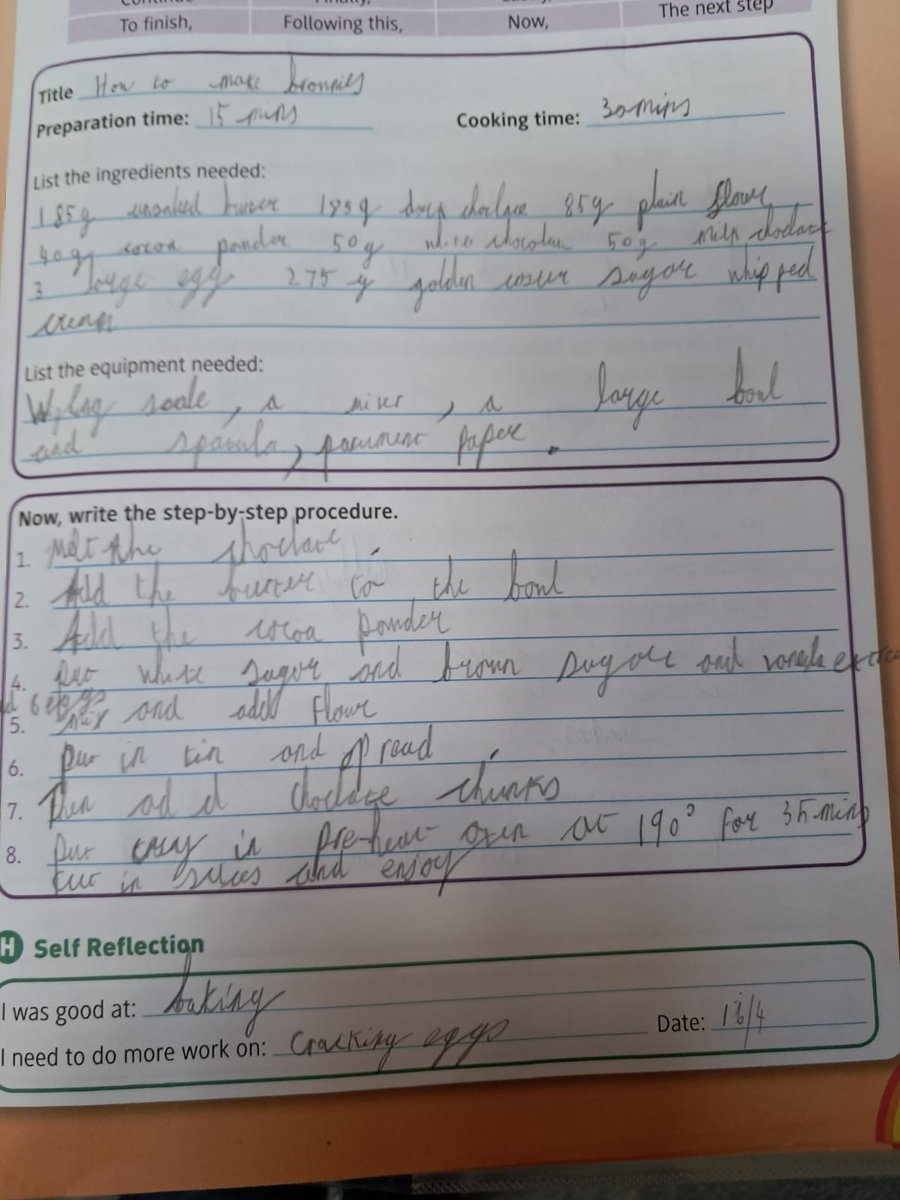 To finish,
Following this,
Now,
The next step
Title How to make brownies
Preparation time: 15 mins
Cooking time: 30 mins
List the ingredients needed:
185g unsalted butter 185g dark choclate 85g plain flour
40g cocoa powder 50g white chocolate 50g milk choclate
3 large egg 275 g golden caster sugar whipped
cream
List the equipment needed:
scale, a mixer, a large bowl
and spatula, parchment paper.
Now, write the step-by-step procedure.
1. Melt the choclate
2. Add the butter to the bowl
3. Add the cocoa powder
4. put white sugar and brown sugar and vanilla
6 eggs
5. mix and add flour
6. put in tin and spread
7. Then add choclate chunks
8. put tray in pre-heat oven at 190° for 35 mins
cut in slices and enjoy
H Self Reflection
I was good at: baking
I need to do more work on: Cracking eggs
Date: